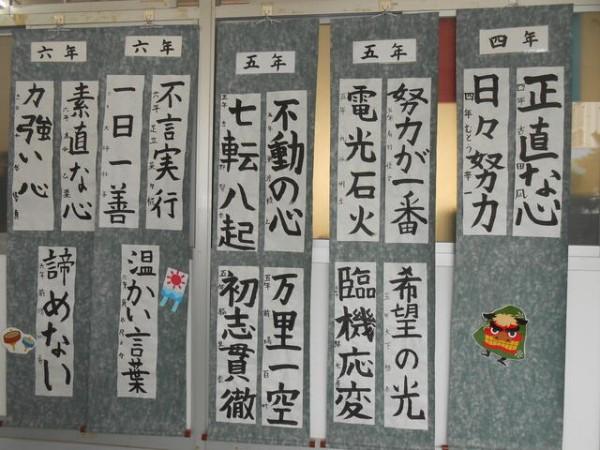 四年
正直な心
日々努力
四年
五年
努力が一番
電光石火
希望の光
臨機応変
五年
不動の心
七転八起
万里一空
五年
初志貫徹
六年
不言実行
一日一善
温かい言葉
六年
素直な心
力強い心
諦めない